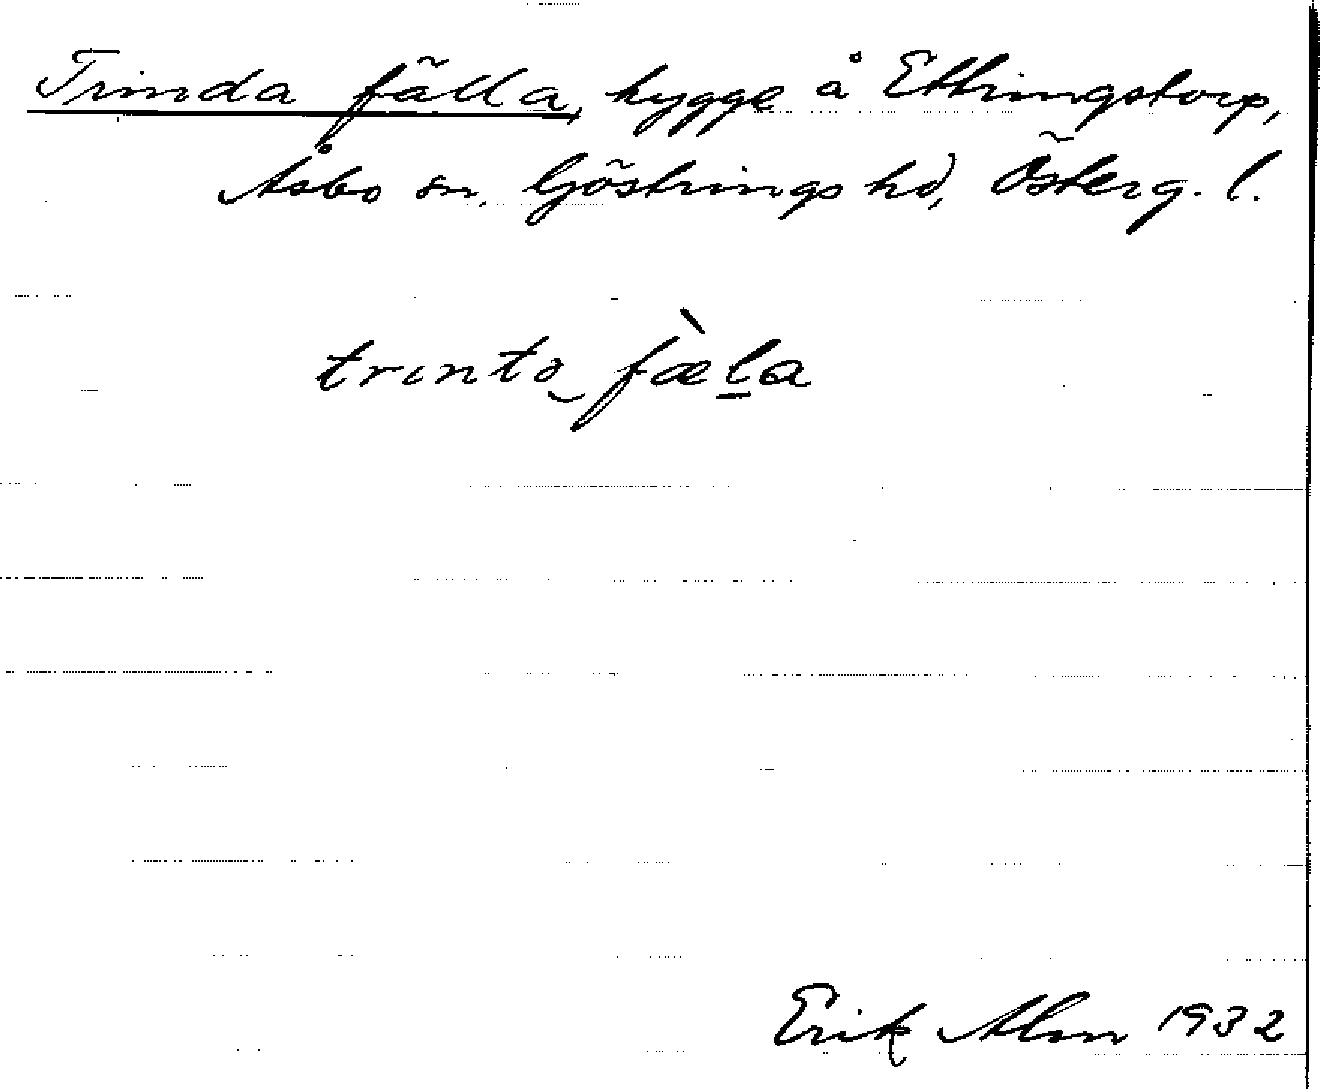 Trinda fälla, hygge å Ettringstorp,
Åsbo sn, Göstrings hd, Österg. l.
trıntɔ‿fæ̀l̠a
Erik Alm 1932